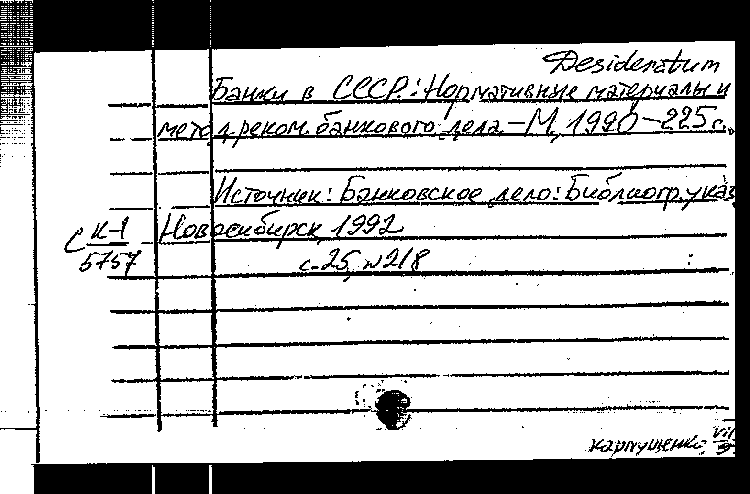 Desideratum
Банки в СССР.: Нормативные материалы и
метод. реком. банковского дела – М, 1990 – 225 с.
Источник: Банковское дело: Библиогр. указ
Новосибирск, 1992
с. 25, №218
С К-1
5757
Карпущенко